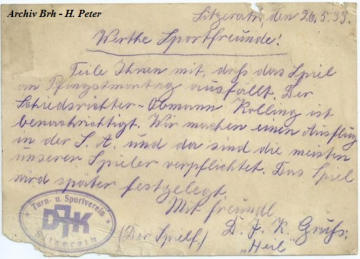 Archiv Brh - H. Peter
Sitzerath, den 26.5.33.
Werthe Sportfreunde!
Teile Ihnen mit, daß das Spiel
an Pfingstmontag ausfällt. Der
Schiedsrichter-Obmann Kolling ist
benachrichtigt. Wir machen einen Ausflug
in der S. A. und da sind die meisten
unserer Spieler verpflichtet. Das Spiel
wird später festgelegt.
Mit freundl.
D. J. K. Gruß.
(Der Spielf.)
"Heil"
Turn- u. Sportverein
DJK
Sitzerath